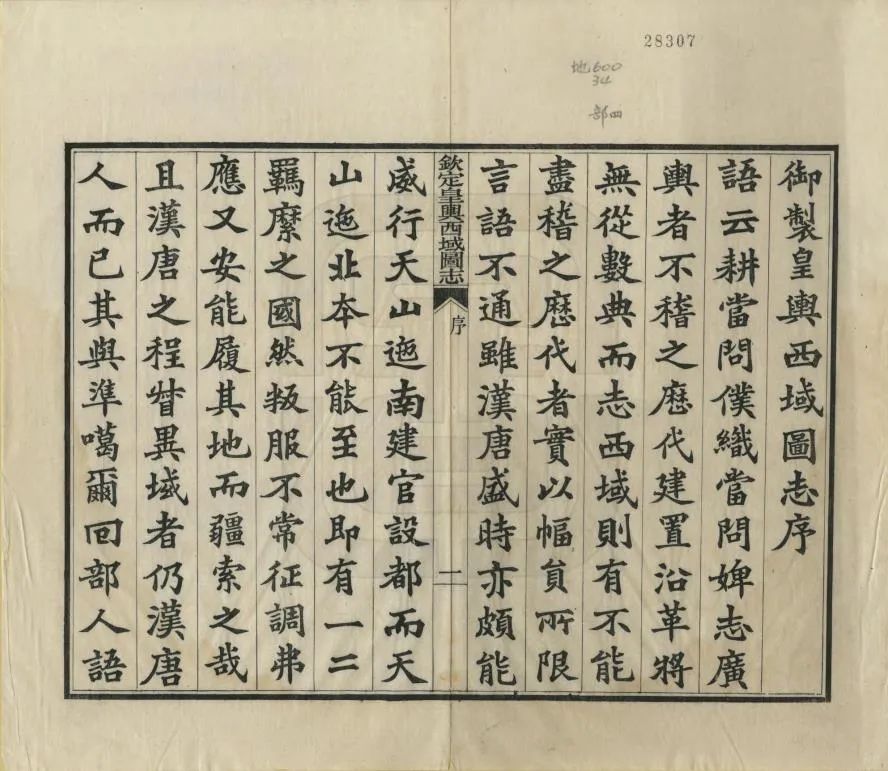 28307
地600
34
部四
御製皇輿西域圖志序
語云耕當問僕織當問婢志廣
輿者不稽之歷代建置沿革將
無從數典而志西域則有不能
盡稽之歷代者實以幅員所限
言語不通雖漢唐盛時亦頗能
欽定皇輿西域圖志
序
一
威行天山迆南建官設都而天
山迆北本不能至也即有一二
羈縻之國然叛服不常征調弗
應又安能履其地而疆索之哉
且漢唐之程督異域者仍漢唐
人而已其與準噶爾回部人語